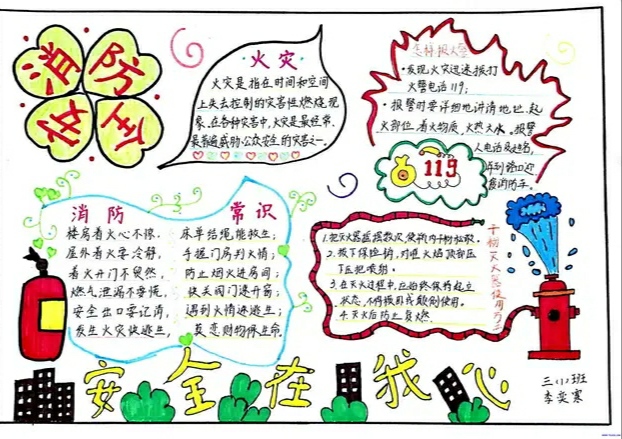 消防
安全
火灾
火灾是指在时间和空间
上失去控制的灾害性燃烧现
象,在各种灾害中,火灾是最经常、
最普遍威胁公众安全的灾害之一。
怎样报火警
·发现火灾迅速拨打
火警电话119;
·报警时要详细地讲清地址、起
火部位、着火物质、火势大小、报警
人电话及姓名,
并到路口迎
接消防车。
119
消防 常识
楼房着火心不惊, 床单结绳能救生;
屋外着火要冷静, 手摸门房判火情;
着火开门不贸然, 防止烟火进房间;
燃气泄漏不要慌, 快关阀门速开窗;
安全出口要记清, 遇到火情速逃生;
发生火灾快逃生, 莫恋财物保生命
干粉灭火器使用方法
1.把灭火器摇摇数次,使瓶内干粉松散。
2.拔下保险销,对准火焰
压压把喷射。
3.在灭火过程中,应始终保持直立
状态,不得横卧或颠倒使用。
4.灭火后防止复燃。
安全在我心
三(1)班
李奕寒